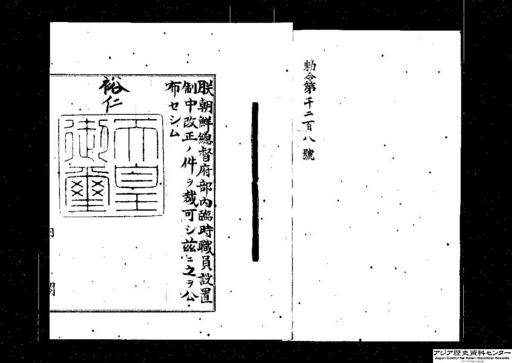 勅令第千二百八號
朕朝鮮總督府部內臨時職員設置
制中改正ノ件ヲ裁可シ茲ニ之ヲ公
布セシム
裕仁
天皇
御璽
内
閣
アジア歴史資料センター
Japan Center for Asian Historical Records